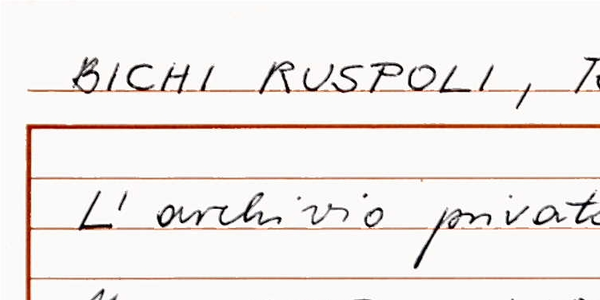 BICHI RUSPOLI,
L' archivio privato